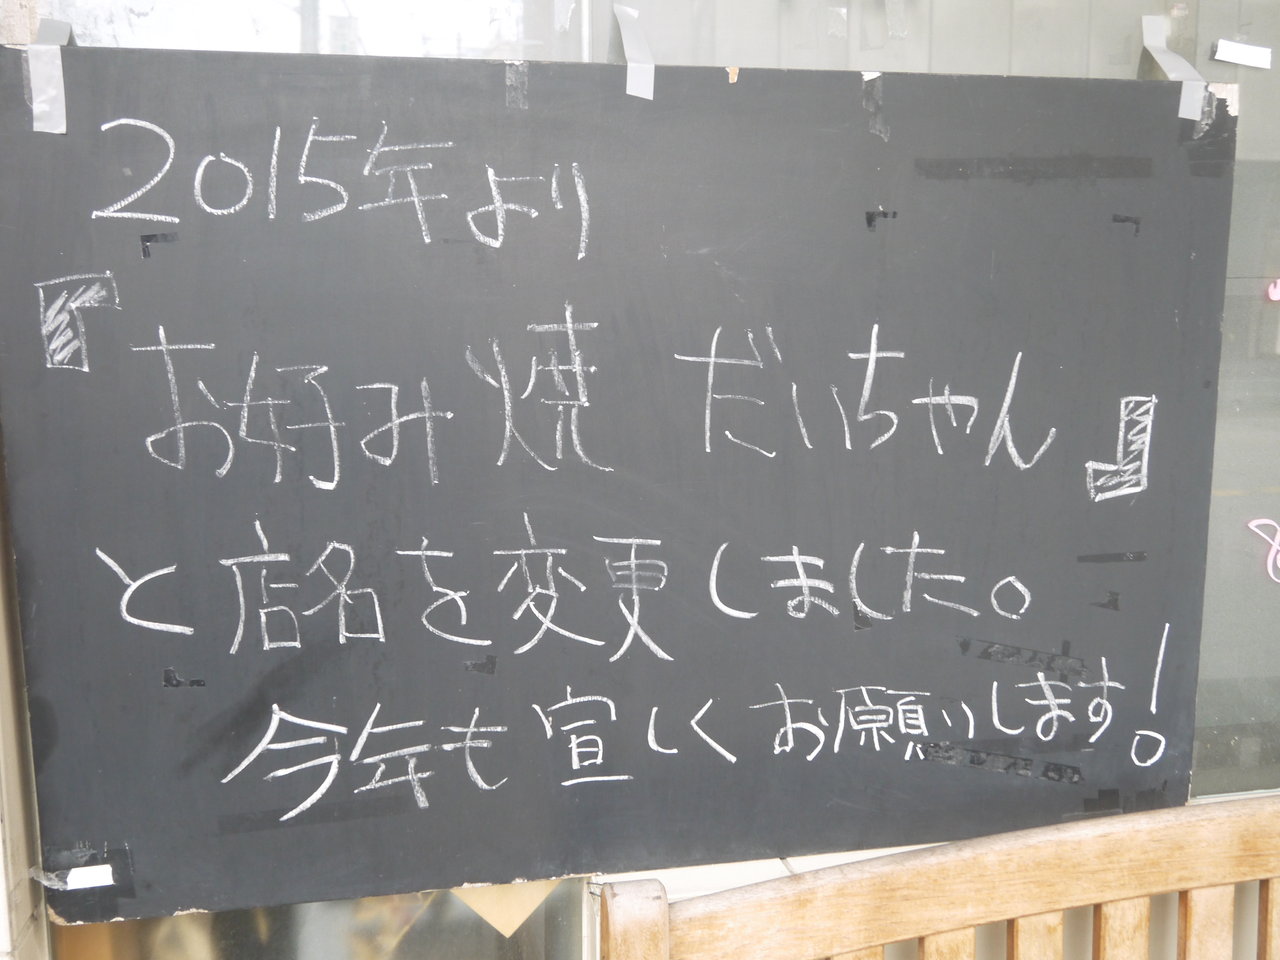 2015年より
『お好み焼 だいちゃん』
と店名を変更しました。
今年も宜しくお願いします!